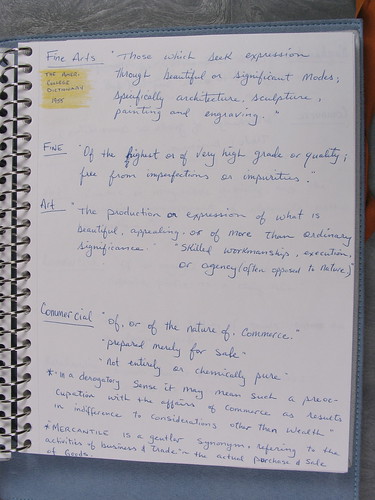 Fine Arts "Those which seek expression
THE AMER. COLLEGE DICTIONARY 1955
through beautiful or significant modes;
specifically architecture, sculpture,
painting and engraving."
FINE "Of the highest or of very high grade or quality;
free from imperfections or impurities."
Art "The production or expression of what is
beautiful, appealing, or of more than ordinary
significance." "Skilled workmanship, execution,
or agency (often opposed to nature)"
Commercial "of, or of the nature of, commerce."
"prepared merely for sale"
"not entirely or chemically pure"
* "in a derogatory sense it may mean such a preoc-
cupation with the affairs of commerce as results
in indifference to considerations other than wealth"
* MERCANTILE is a gentler synonym, referring to the
activities of business & trade in the actual purchase & sale
of goods.